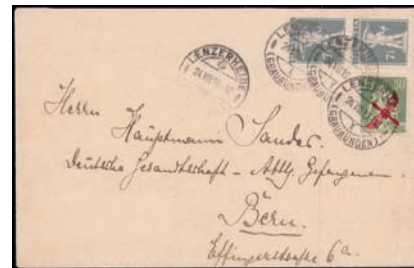 LENZERHEIDE
LENZERHEIDE
(GRAUBÜNDEN)
(GRAUBÜNDEN)
Herrn
Hauptmann Sander.
Deutsche Gesandtschaft – Abtlg. Gefangenen.
Bern.
Effingerstraße 6a.